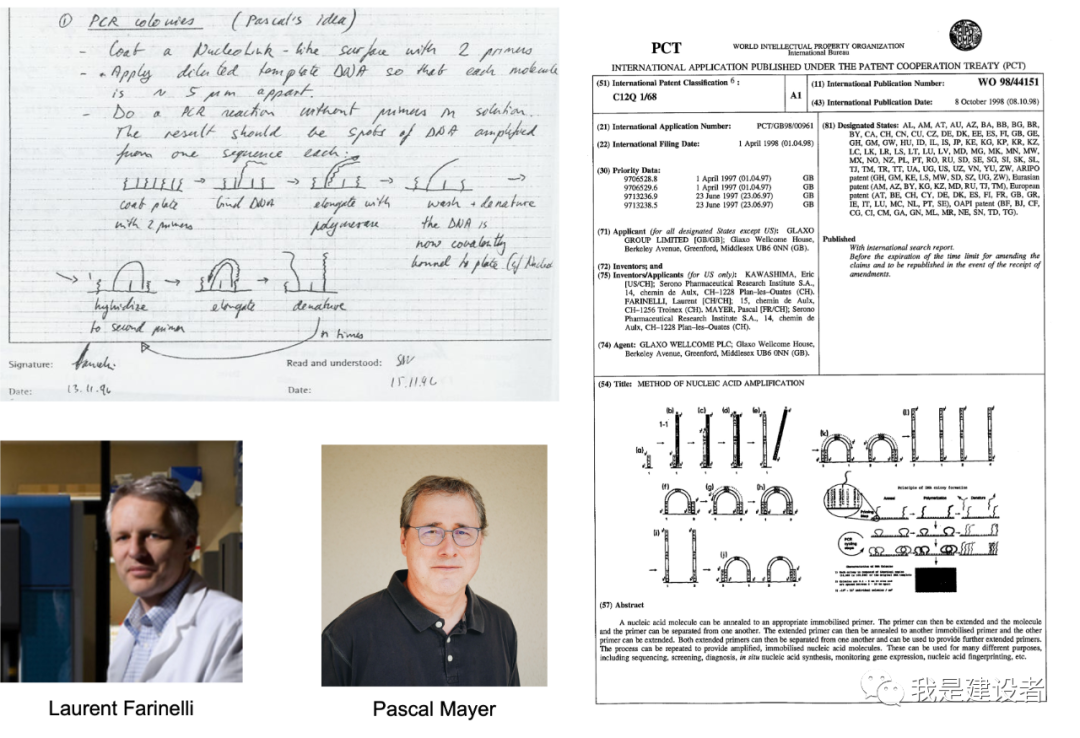 ① PCR colonies (Pascal's idea)
- Coat a NucleoLink-like surface with 2 primers
- Apply diluted template DNA so that each molecule
is ~ 5 µm appart.
- Do a PCR reaction without primers in solution.
The result should be spots of DNA amplified
from one sequence each.
coat plate
with 2 primers
bind DNA
elongate with
polymerase
wash + denature
the DNA is
now covalently
bound to plate
hybridize
to second primer
elongate
denature
n times
Signature:
Date: 13.11.96
Read and understood:
Date: 15.11.96
Laurent Farinelli
Pascal Mayer
PCT
WORLD INTELLECTUAL PROPERTY ORGANIZATION
International Bureau
INTERNATIONAL APPLICATION PUBLISHED UNDER THE PATENT COOPERATION TREATY (PCT)
(51) International Patent Classification 6 :
C12Q 1/68
A1
(11) International Publication Number: WO 98/44151
(43) International Publication Date: 8 October 1998 (08.10.98)
(21) International Application Number: PCT/GB98/00961
(22) International Filing Date: 1 April 1998 (01.04.98)
(30) Priority Data:
9706528.8 1 April 1997 (01.04.97) GB
9706529.6 1 April 1997 (01.04.97) GB
9713236.9 23 June 1997 (23.06.97) GB
9713238.5 23 June 1997 (23.06.97) GB
(71) Applicant (for all designated States except US): GLAXO
GROUP LIMITED [GB/GB]; Glaxo Wellcome House,
Berkeley Avenue, Greenford, Middlesex UB6 0NN (GB).
(72) Inventors; and
(75) Inventors/Applicants (for US only): KAWASHIMA, Eric
[US/CH]; Serono Pharmaceutical Research Institute S.A.,
14, chemin de Aulx, CH-1228 Plan-les-Ouates (CH).
FARINELLI, Laurent [CH/CH]; 15, chemin de Aulx,
CH-1256 Troinex (CH). MAYER, Pascal [FR/CH]; Serono
Pharmaceutical Research Institute S.A., 14, chemin de
Aulx, CH-1228 Plan-les-Ouates (CH).
(74) Agent: GLAXO WELLCOME PLC; Glaxo Wellcome House,
Berkeley Avenue, Greenford, Middlesex UB6 0NN (GB).
(81) Designated States: AL, AM, AT, AU, AZ, BA, BB, BG, BR,
BY, CA, CH, CN, CU, CZ, DE, DK, EE, ES, FI, GB, GE,
GH, GM, GW, HU, ID, IL, IS, JP, KE, KG, KP, KR, KZ,
LC, LK, LR, LS, LT, LU, LV, MD, MG, MK, MN, MW,
MX, NO, NZ, PL, PT, RO, RU, SD, SE, SG, SI, SK, SL,
TJ, TM, TR, TT, UA, UG, US, UZ, VN, YU, ZW, ARIPO
patent (GH, GM, KE, LS, MW, SD, SZ, UG, ZW), Eurasian
patent (AM, AZ, BY, KG, KZ, MD, RU, TJ, TM), European
patent (AT, BE, CH, CY, DE, DK, ES, FI, FR, GB, GR,
IE, IT, LU, MC, NL, PT, SE), OAPI patent (BF, BJ, CF,
CG, CI, CM, GA, GN, ML, MR, NE, SN, TD, TG).
Published
With international search report.
Before the expiration of the time limit for amending the
claims and to be republished in the event of the receipt of
amendments.
(54) Title: METHOD OF NUCLEIC ACID AMPLIFICATION
(a)
1-1
(b)
(c)
(d)
(e)
(f)
(g)
(h)
(i)
(j)
(k)
(l)
Principle of DNA colony formation
PCR
cycling
steps
(57) Abstract
A nucleic acid molecule can be annealed to an appropriate immobilised primer. The primer can then be extended and the molecule
and the primer can be separated from one another. The extended primer can then be annealed to another immobilised primer and the other
primer can be extended. Both extended primers can then be separated from one another and can be used to provide further extended primers.
The process can be repeated to provide amplified, immobilised nucleic acid molecules. These can be used for many different purposes,
including sequencing, screening, diagnosis, in situ nucleic acid synthesis, monitoring gene expression, nucleic acid fingerprinting, etc.
我是建设者